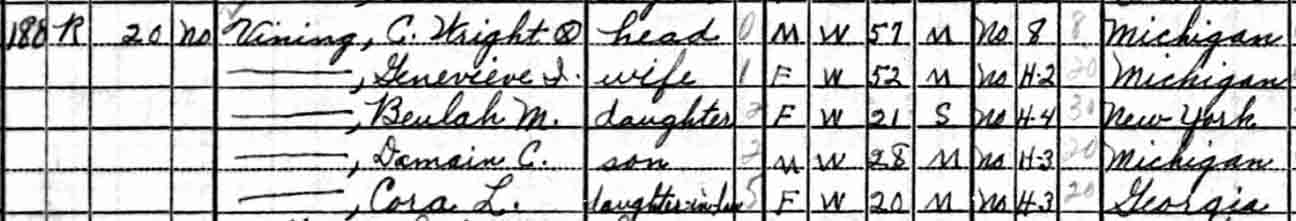 188 R 20 No Vining, C. Wright ⓧ head 0 M W 57 M No 8 8 Michigan
———, Genevieve I. wife 1 F W 52 M No H-2 20 Michigan
———, Beulah M. daughter 2 F W 21 S No H-4 30 New York
———, Domain C. son 2 M W 28 M No H-3 20 Michigan
———, Cora L. daughter-in-law 5 F W 20 M No H-3 20 Georgia